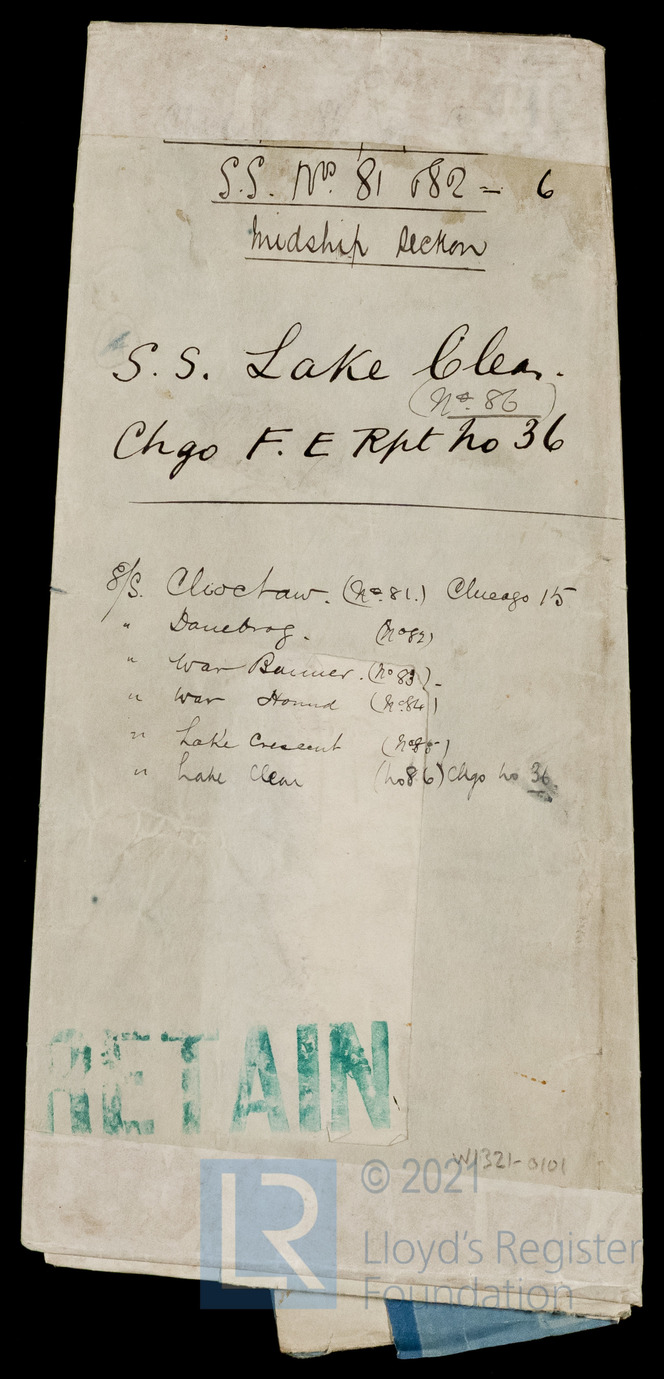 S.S. Nos. 81 & 82 - 6
Midship Section
S.S. Lake Clear.
(No. 86)
Chgo F. E Rpt No 36
S/S. Choctaw. (No. 81.) Chicago 15
" Danebrog. (No 82)
" War Banner. (No 83) -
" War Hound (No. 84)
" Lake Crescent (No 85)
" Lake Clear (No 86) Chgo No 36
RETAIN
W1321-0101
LR
© 2021
Lloyd's Register
Foundation